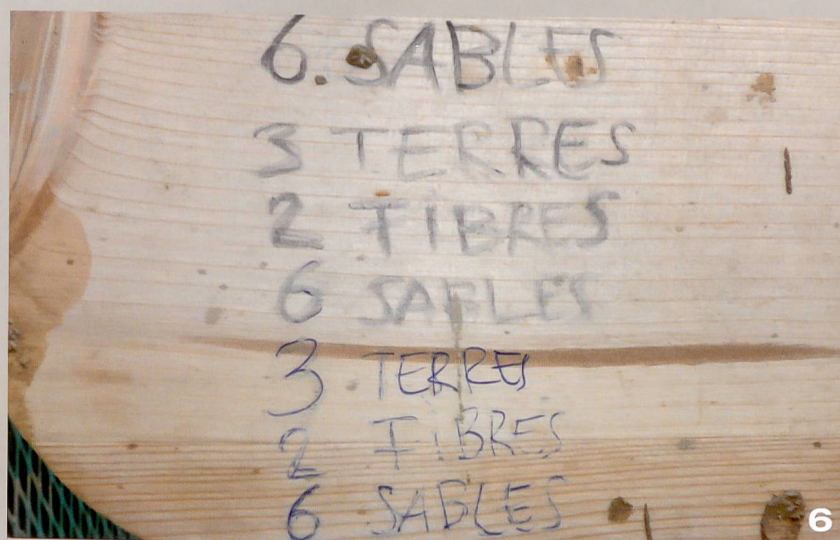 6. SABLES
3 TERRES
2 FIBRES
6 SABLES
3 TERRES
2 FIBRES
6 SABLES
6